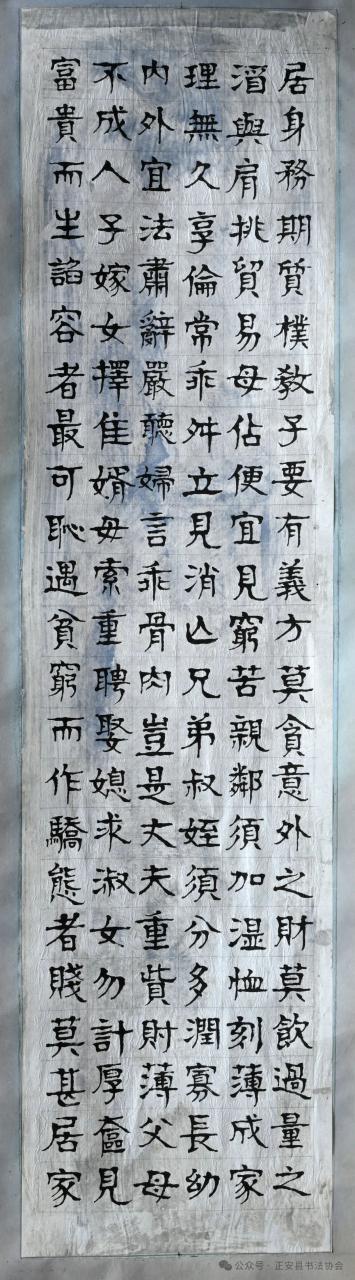 居身務期質樸教子要有義方莫貪意外之財莫飲過量之
酒與肩挑貿易毋佔便宜見窮苦親鄰須加温恤刻薄成家
理無久享倫常乖舛立見消亾兄弟叔姪須分多潤寡長幼
内外宜法肅辭嚴聽婦言乖骨肉豈是丈夫重貲財薄父母
不成人子嫁女擇佳婿毋索重聘娶媳求淑女勿計厚奩見
富貴而生諂容者最可恥遇貧窮而作驕態者賤莫甚居家
公众号 · 正安县书法协会